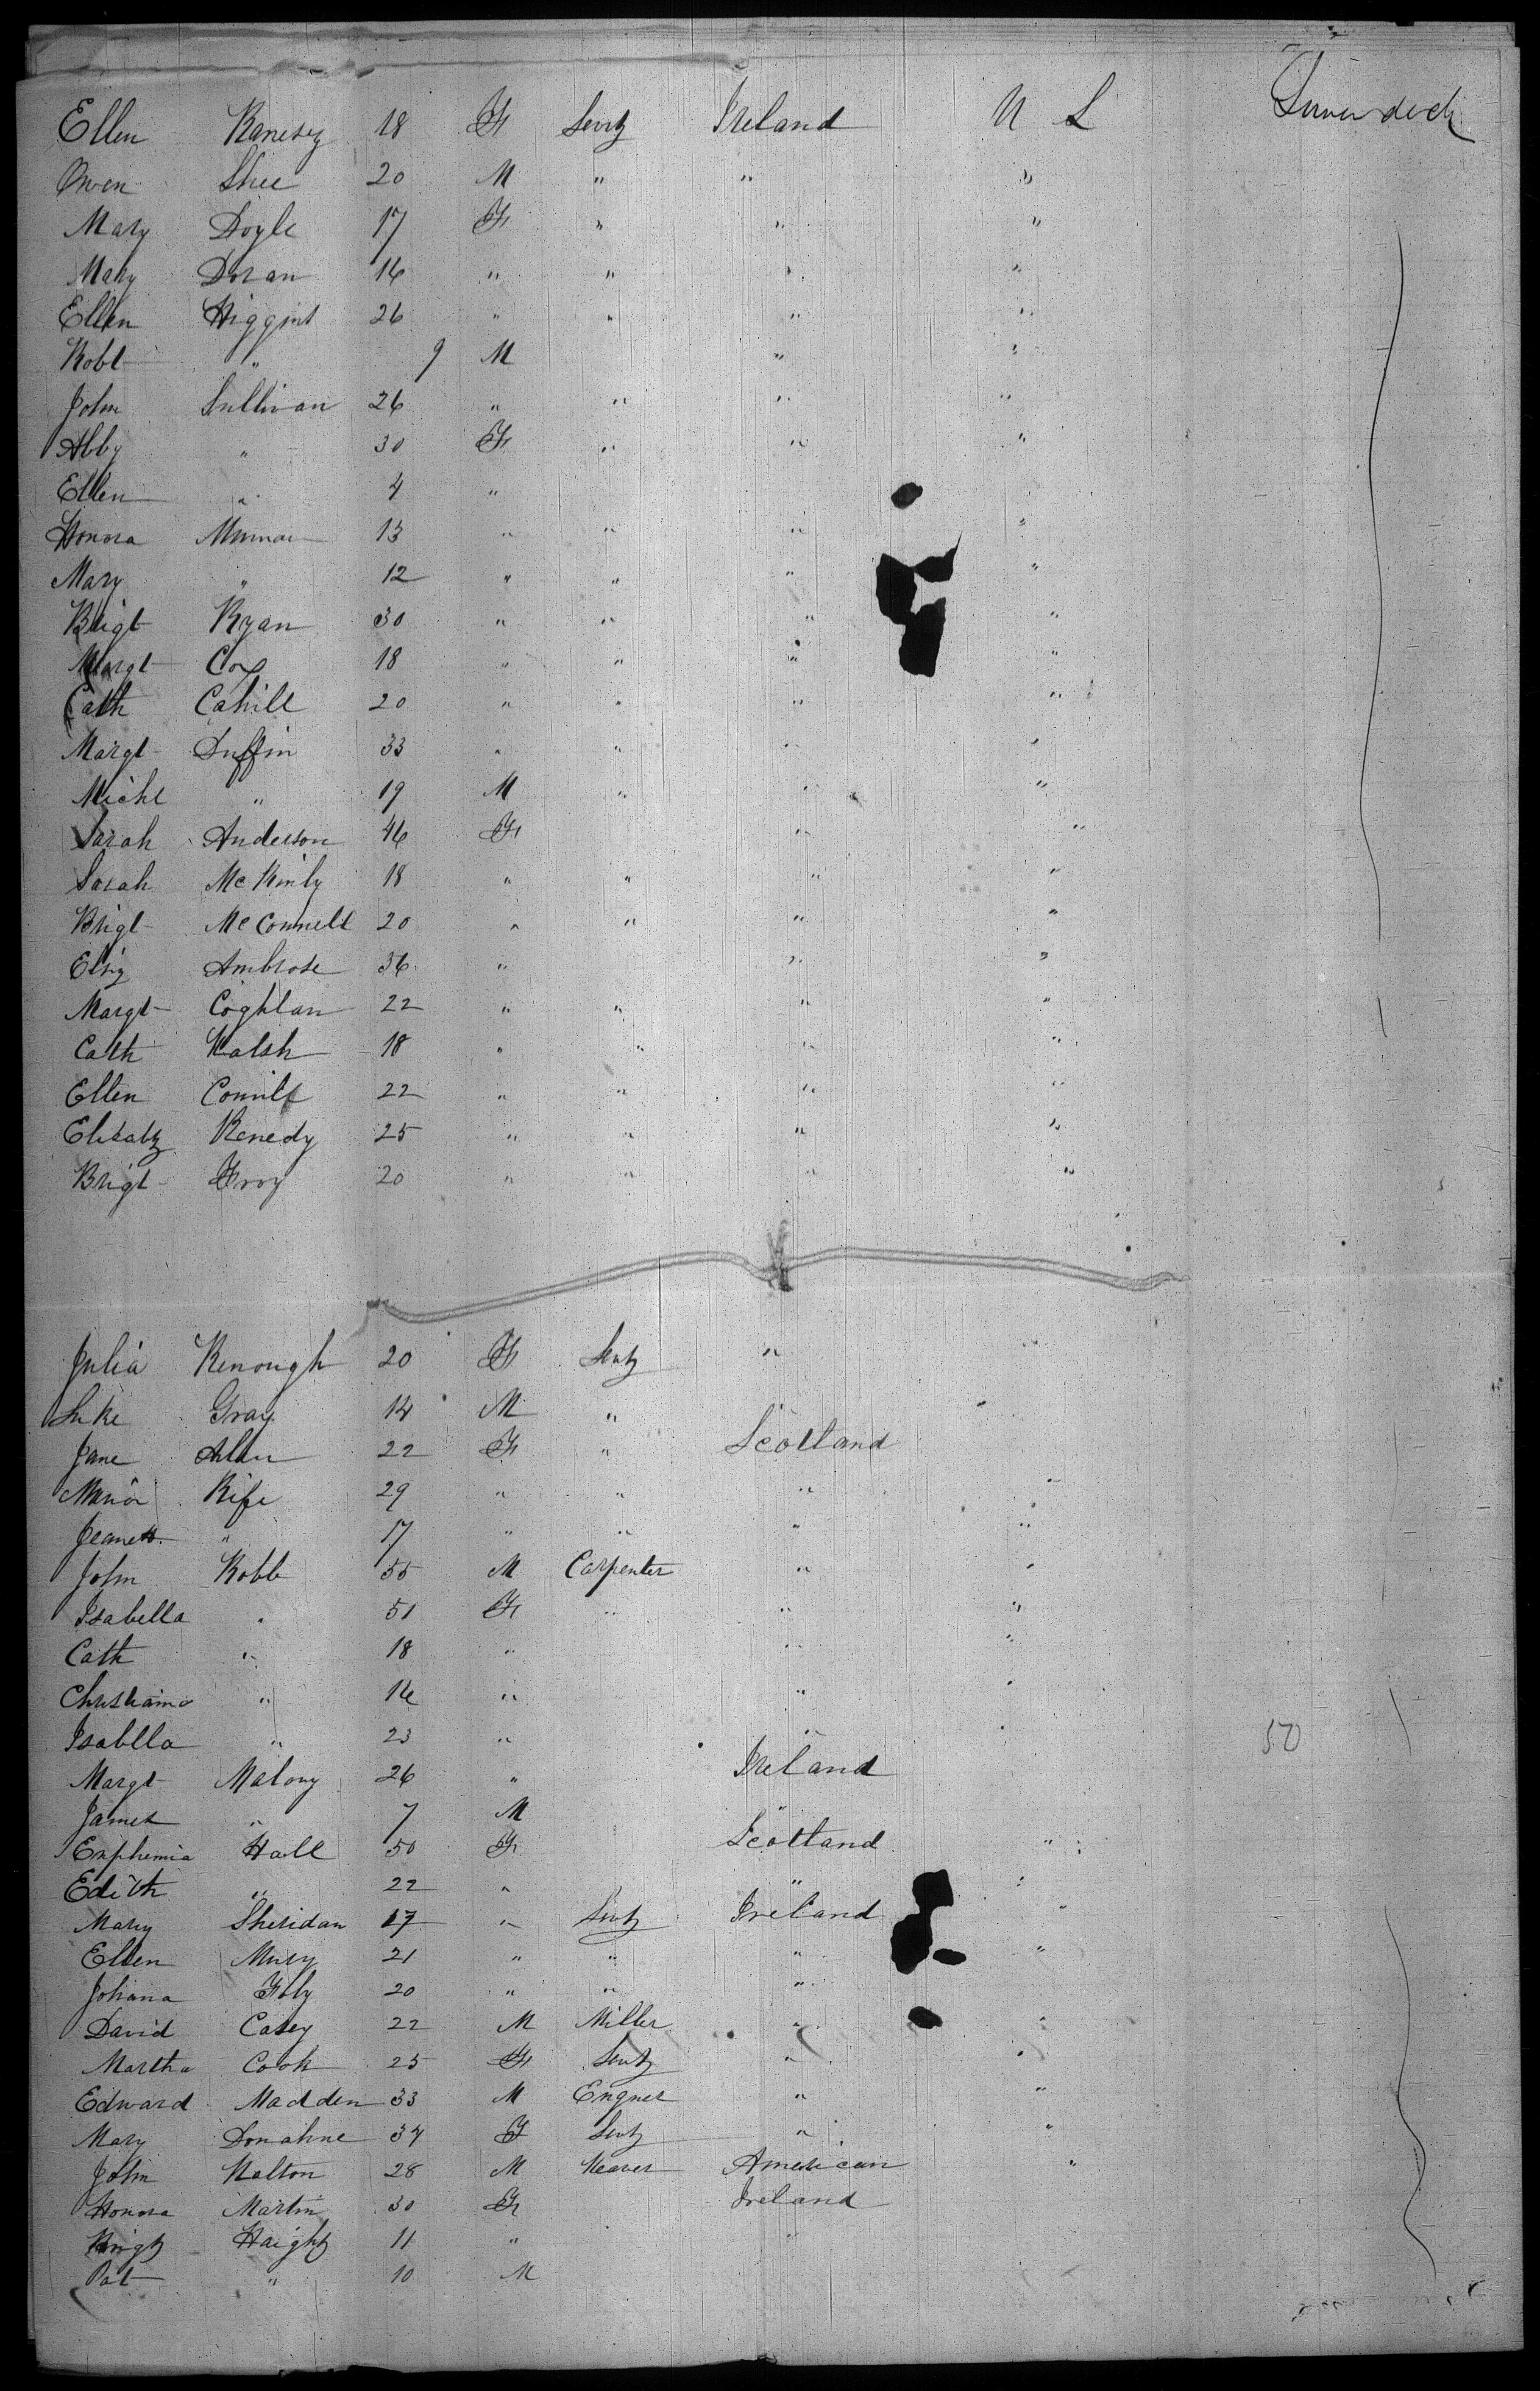 Ellen Kanesey 18 F Servt Ireland U S Lower deck
Owen Shee 20 M " " "
Mary Doyle 17 F " " "
Mary Doran 16 " " " "
Ellen Higgins 26 " " " "
Robt " 9 M " "
John Sullivan 26 " " " "
Abby " 30 F " " "
Ellen " 4 "
Honora 13 " " " "
Mary " 12 " " " "
Brigt Ryan 30 " " " "
Margt Cox 18 " " " "
Cath Cahill 20 " " " "
Margt Duffin 33 " " " "
Michl " 19 M " " "
Sarah Anderson 46 F " "
Sarah McKinly 18 " " " "
Brigt McConnell 20 " " " "
Ambrose 36 " " "
Margt Coghlan 22 " " " "
Cath Walsh 18 " " " "
Ellen 22 " " " "
Kenedy 25 " " " "
Brigt 20 " " " "
Julia Kenough 20 F Servt "
Luke Gray 14 M "
Jane Alan 22 F " Scotland
Kife 29 " " "
Jeanett " 17 " " " "
John Robb 55 M Carpenter " "
Isabella " 51 F " " "
Cath " 18 " " "
Christiana " 16 " "
Isabella " 23 " " 50
Margt Malony 26 " Ireland
James " 7 M "
Euphemia Hall 50 F Scotland "
Edith " 22 " " "
Mary Sheridan 17 " Servt Ireland "
Ellen 21 " " " "
Johana Foly 20 " " "
David Casey 22 M Miller " "
Martha Cook 25 F Servt " "
Edward Madden 33 M Engner " "
Mary Donahue 37 F Servt " "
John Walton 28 M Weaver American "
Honora Martin 30 F Ireland
Haight 11 " "
Pat " 10 M